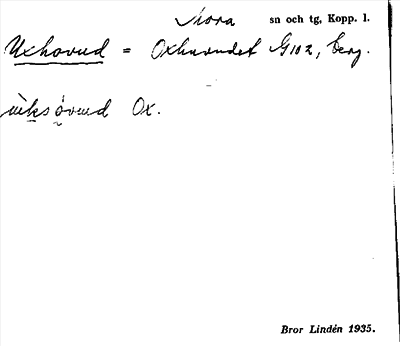 Mora sn och tg, Kopp. l.
Uxhovud = Oxhuvudet G102, berg.
ùksóvud Ox.
Bror Lindén 1935.